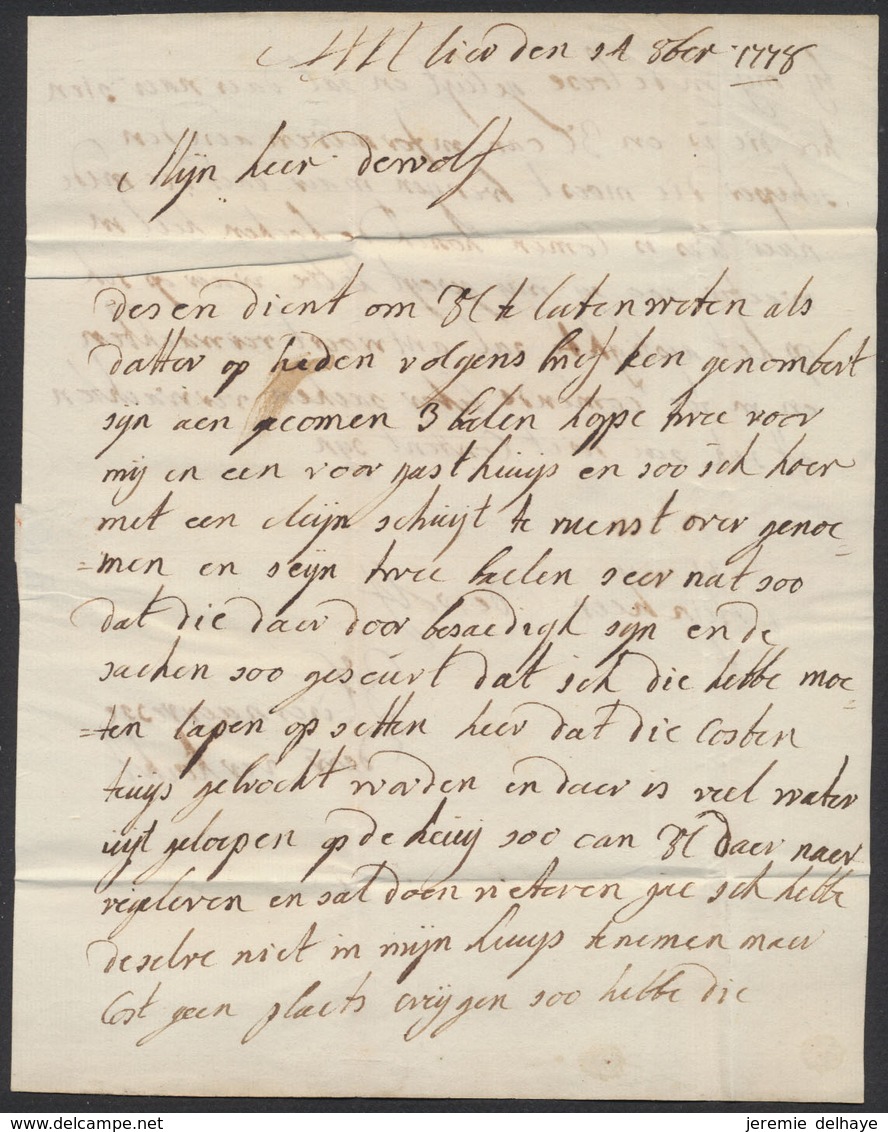 lier den 14 8ber 1778
Mijn heer dewolf
desen dient om Vl te laeten weten als
datter op heden volgens brief ken genombert
sijn aen gecomen 3 baelen hoppe twee voor
mij en een voor gasthuijs en soo ick hoer
met een cleijn schuijt te rumst over genoe
=men en seijn twee baelen seer nat soo
dat die daer door besaedigh sijn en de
sacken soo gesceurt dat ick die hebbe moe
=ten lapen op setten heer dat die costen
tuijs gebrocht worden en daer is viel water
uijt geloepen op de keuij soo can Vl daer naer
regeleren en sal doen riteren gue ick hebbe
deselve niet in mijn huijs te nemen maer
cost geen plaets crijgen soo hebbe die
jeremie delhaye